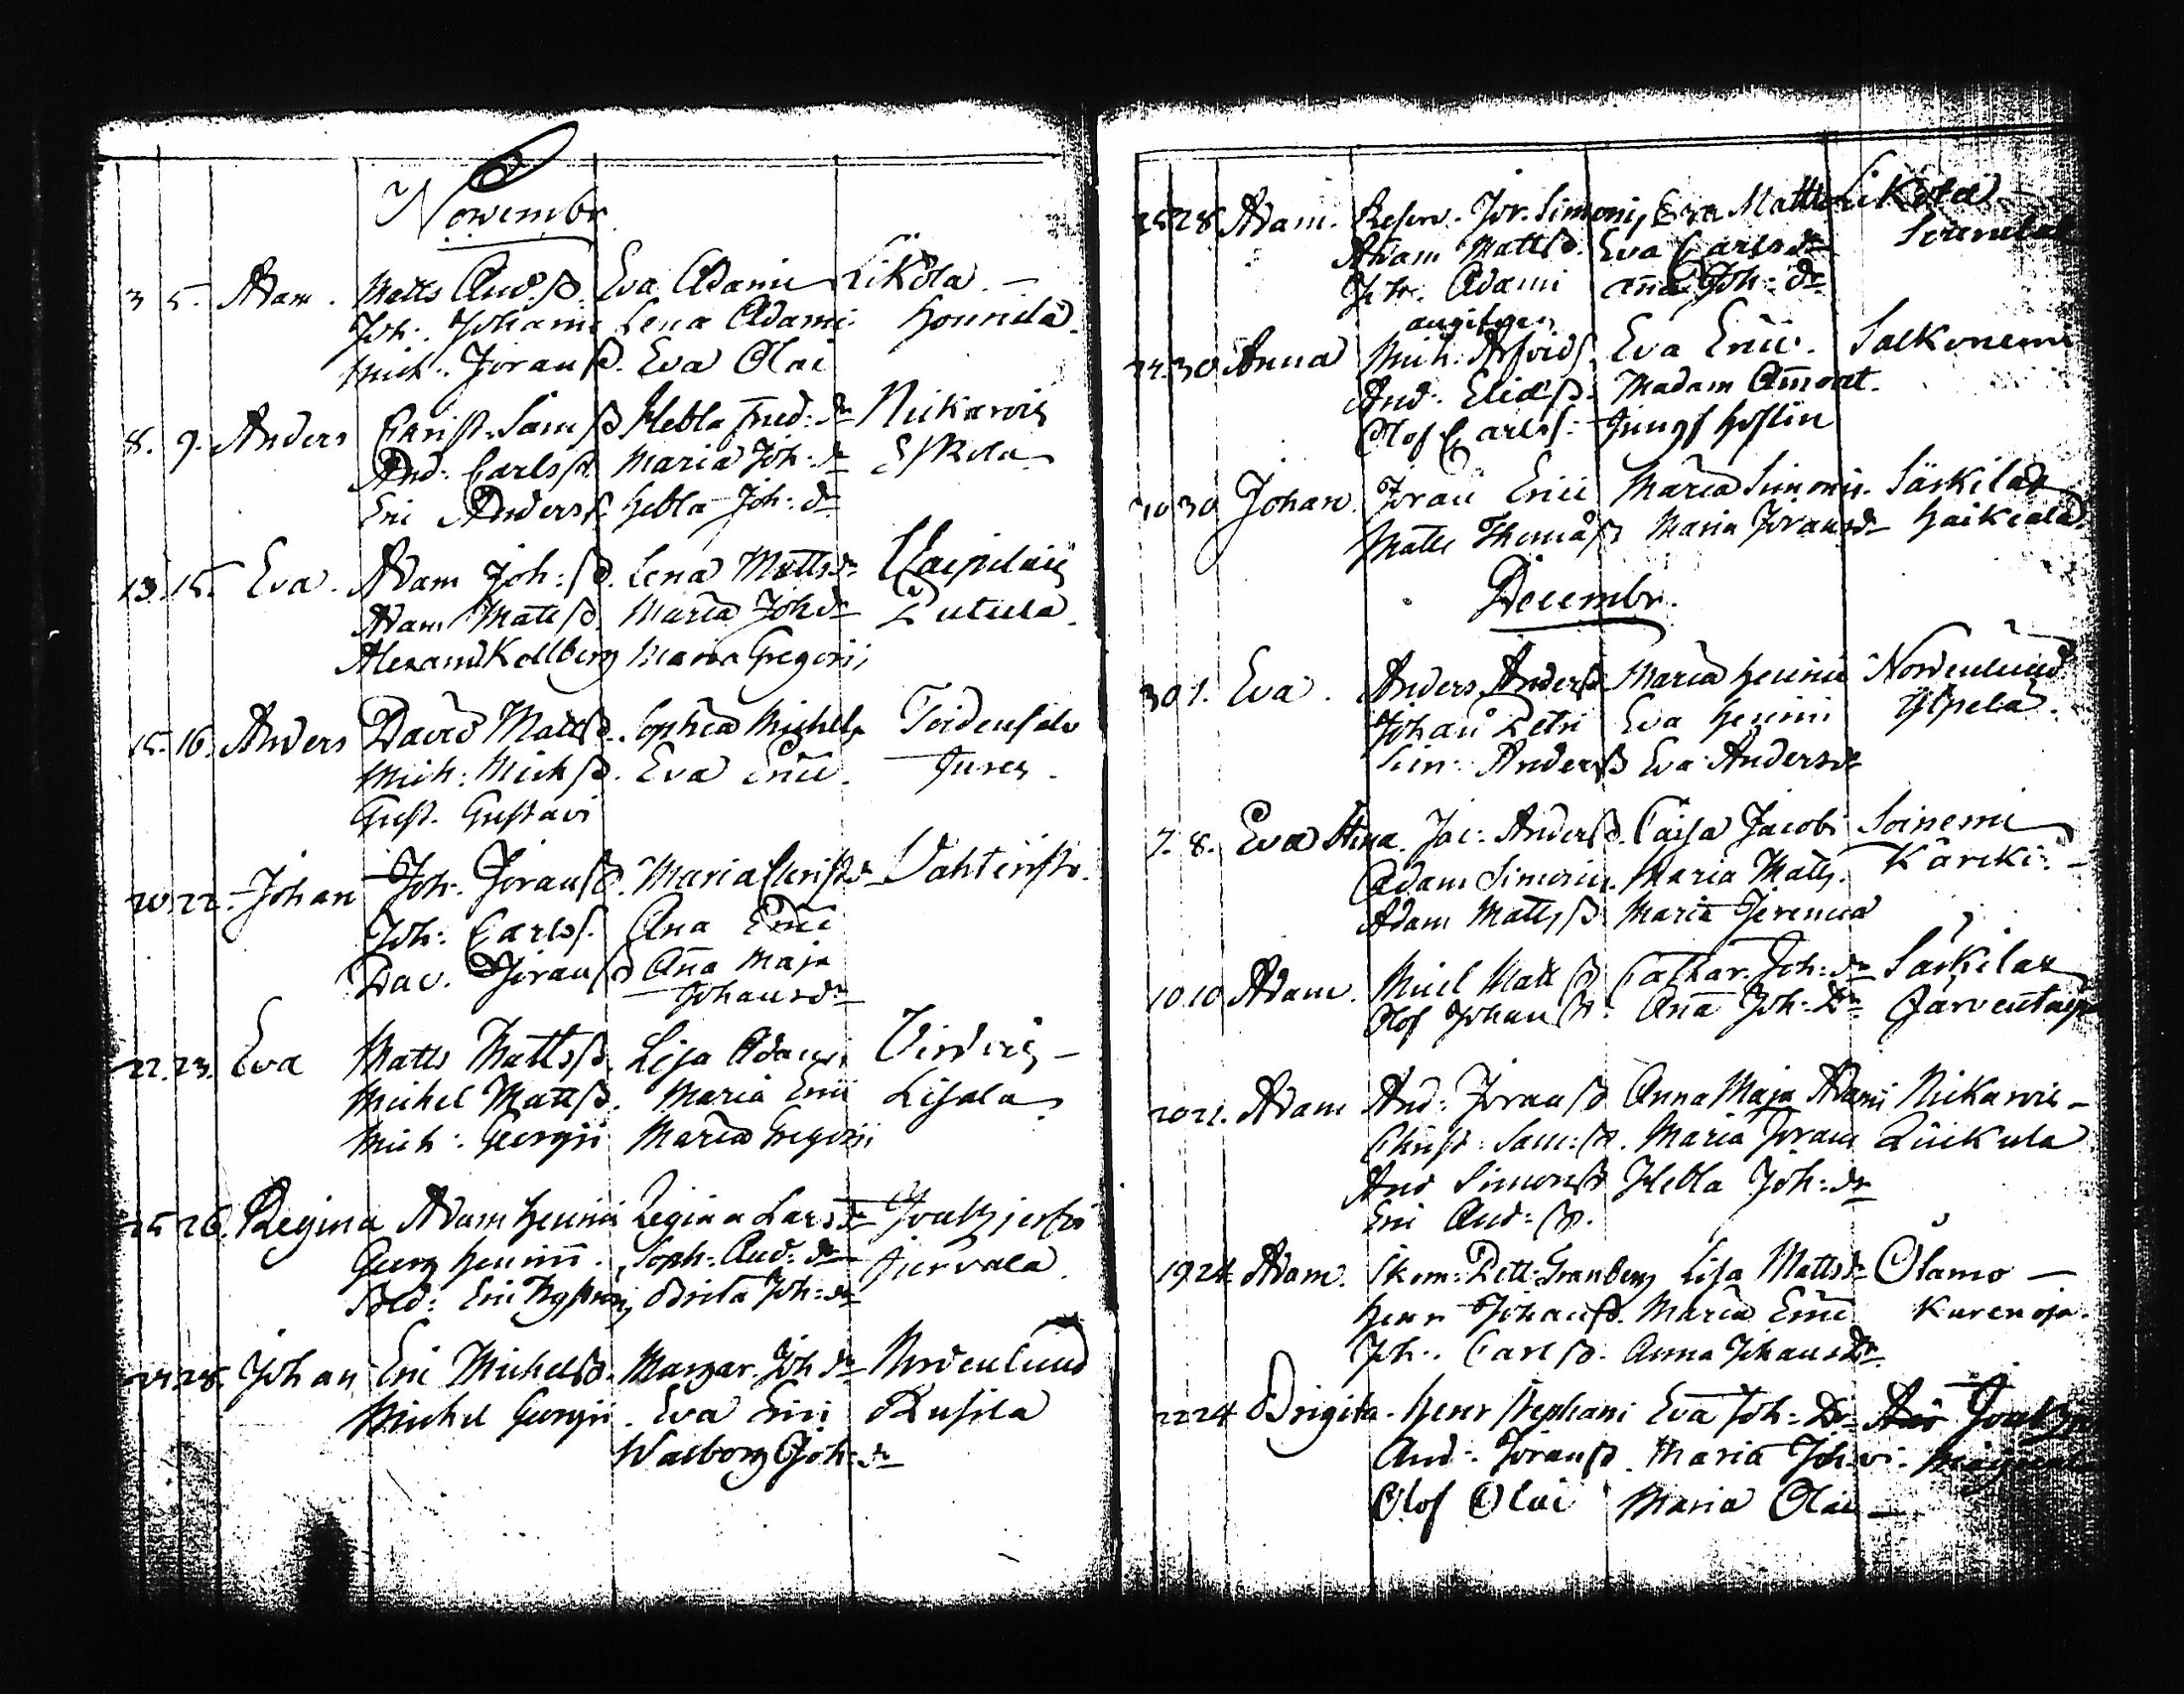 Novembr
3 5. Adam. Matts And.ß. Eva Adami Likola.
Joh. Johanni Lena Adami Hounila.
Mich. Jöranß. Eva Olai
8. 9. Anders Christ. Samß Hebla Fred: dr Nickarvis
And: Carlsß. Maria Joh: dr Eskola
Eric Andersß. Hebla Joh: dr
13. 15. Eva. Adam Joh:ß. Lena Mattsdr
Adam Mattsß. Maria Joh dr Putula.
Alexand Kellberg Maria Gregorii
15. 16. Anders David Mattsß. Sophia Michels
Mich: Michß. Eva Erici.
Gust. Gustavi
20 22. Johan Joh. Jöranß. Maria Christdr
Joh: Carlsß. Aña Erici
Dav. Jöranß Aña Maja
Johansdr
22. 23. Eva Matts Mattsß. Lisa Adami
Michel Mattsß. Maria Erici Lisala
Mich: Georgii Maria Gregorii
25 26. Regina Adam Henrici Regina Larsdr
Georg Henrici. Soph: And: dr Jurvala.
Eric Brita Joh: dr
28. Johan Eric Michelsß. Margar. Joh dr Nordenlund
Michel Georgii. Eva Erici Rusila
Walborg Joh: dr
25 28 Adam. Reserv. Jör. Simonis Eva Matts Likola
Adam Mattsß. Eva Carlsdr
Adami aña Joh: dr
angifven
30 Anna Mich: Arfvids. Eva Erici.
And: Eliæß. Madam
Olof Carlsß: Jungf Hoflin
30 Johan. Jöran Erici Maria Simonis. Särkilax
Matts Thomäß Maria Jöransdr Haikiala.
Decembr.
30 1. Eva. Anders Andersß Maria Henrici Nordenlund
Johan Petri Eva Henrici Yspelä.
Sim: Andersß Eva Andersdr
7. 8. Eva Stina. Jac: Andersß. Caisa Jacobi Soinemi
Adam Simonis. Maria Matts. Kärcki.
Adam Mattsß. Maria Jeremiä
10 10 Adam. Michl Mattß Cathar. Joh: dr Särkilax
Olof Johanß. Aña Joh: Dr
20 21. Adam And: Jöranß Anna Maja Adami Nickarvis
Christ: Sam:ß. Maria Jöran
And Simonsß Hebla Joh: dr
Eric And:ß.
19 24 Adam. Skom: Pett. Granberg Lisa Mattsdr Olamo
Henr Johanß. Maria Erici Kurenoja.
Joh: Carlß. Anna Johansdr
22 24 Brigita. Henr Stephani Eva Joh: Dr
And: Jöranß. Maria
Olof Olai Maria Olai